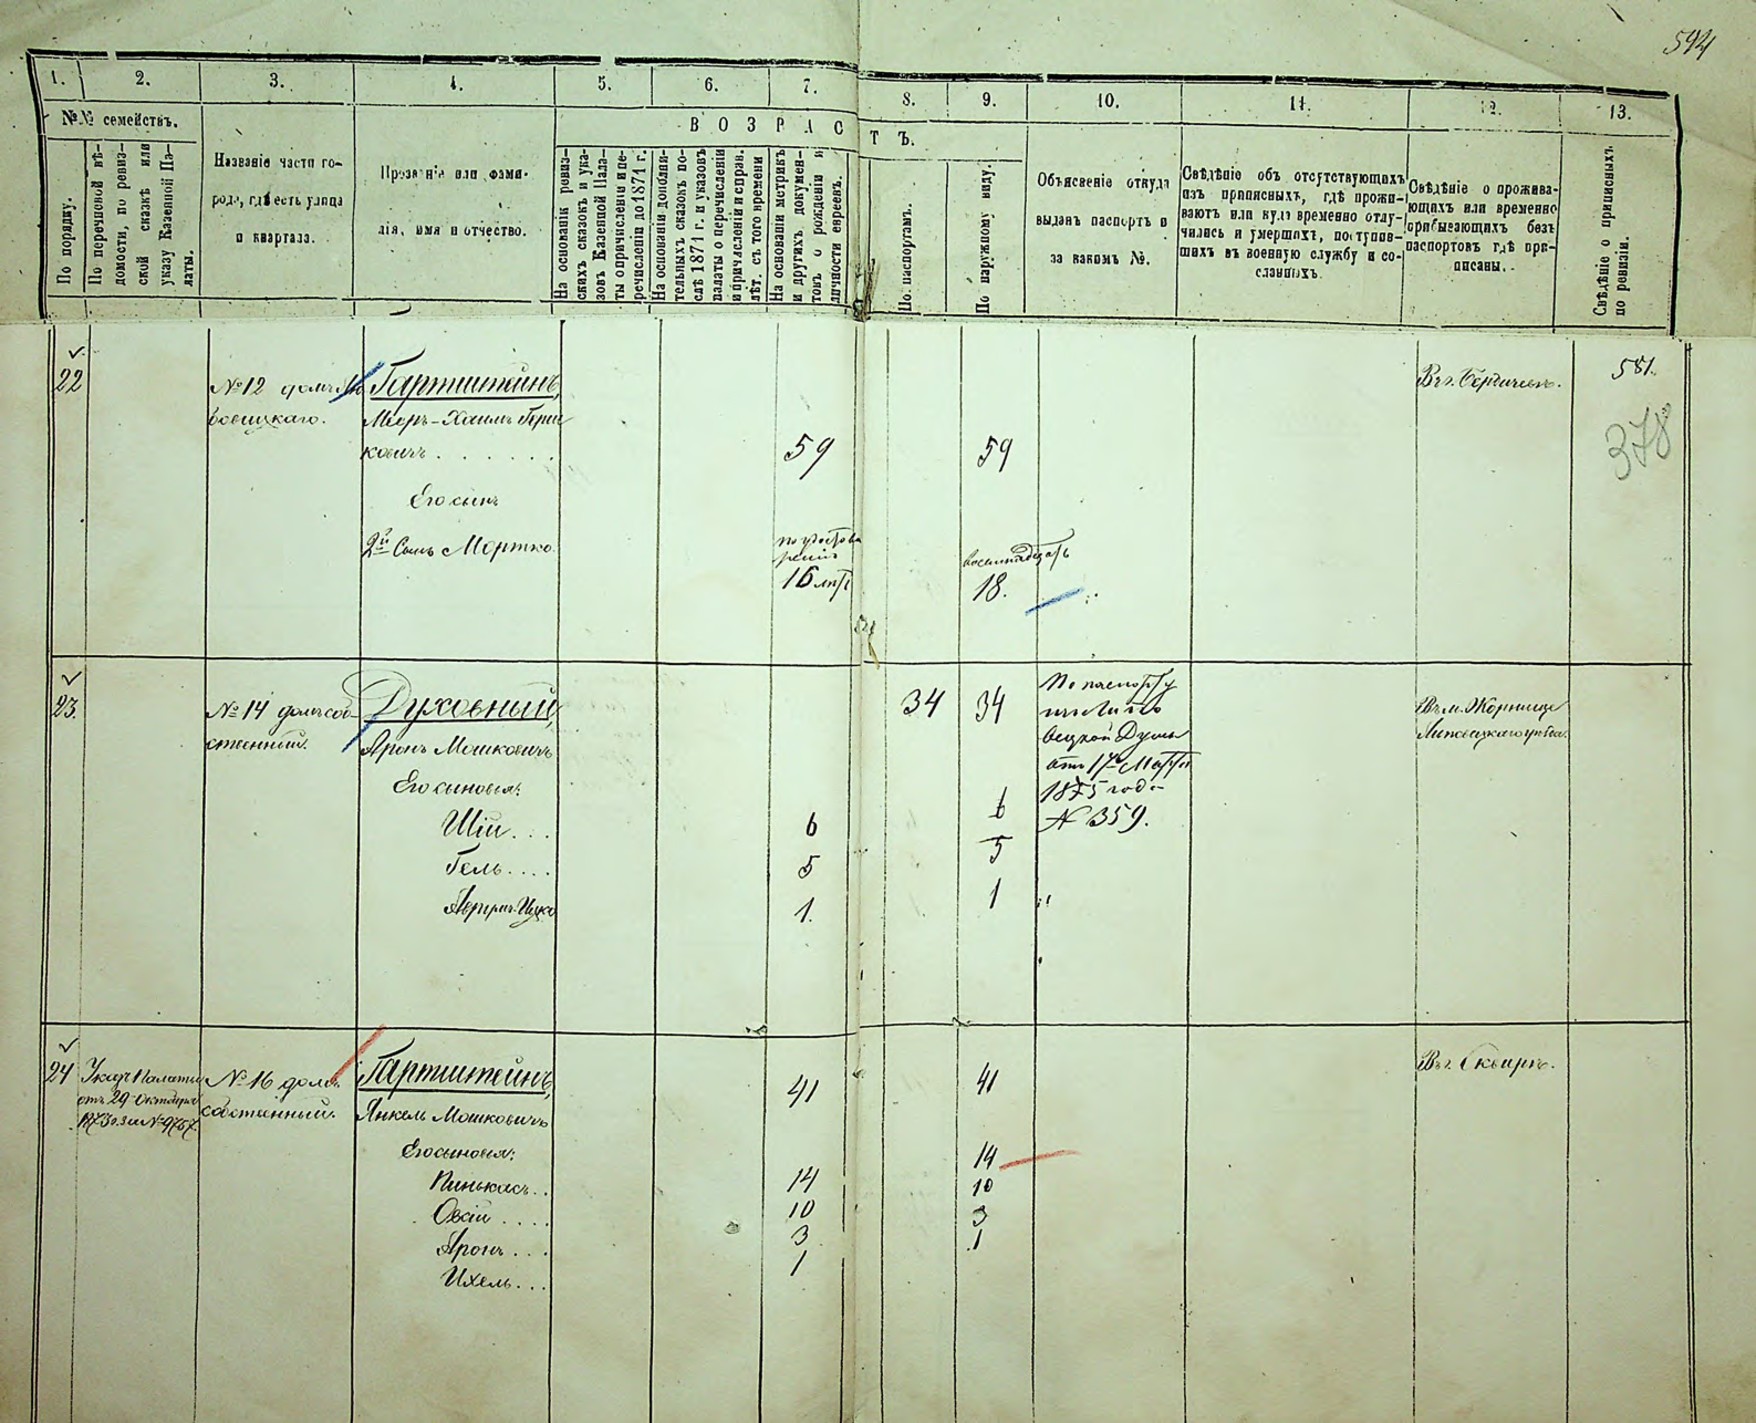 594
1. 2. 3. 4. 5. 6. 7. 8. 9. 10. 11. 12. 13.
№№ семействъ.
По порядку.
По перечневой вѣ-
домости, по ревиз-
ской сказкѣ или
указу Казенной Па-
латы.
Названіе части го-
рода, гдѣ есть улица
и квартала.
Прозваніе или фами-
лія, имя и отчество.
ВОЗРАСТЪ.
На основаніи ревиз-
скихъ сказокъ и ука-
зовъ Казенной Пала-
ты о причисленіи и пе-
речисленіи до 1871 г.
На основаніи дополни-
тельныхъ сказокъ по-
слѣ 1871 г. и указовъ
палаты о перечисленіи
и причисленіи и справ.
лѣт. съ того времени
На основаніи метрикъ
и другихъ докумен-
товъ о рожденіи и
личности евреевъ.
По паспортамъ.
По наружному виду.
Объясненіе откуда
выданъ паспортъ и
за какимъ №.
Свѣдѣніе объ отсутствующихъ
изъ приписныхъ, гдѣ прожи-
ваютъ или куда временно отлу-
чились и умершихъ, поступив-
шихъ въ военную службу и со-
сланныхъ.
Свѣдѣніе о прожива-
ющихъ или временно
прибывающихъ безъ
паспортовъ гдѣ при-
писаны.
Свѣдѣніе о приписныхъ
по ревизіи.
22
№ 12 домъ
Гартштейнъ,
Мееръ-Хаимъ Герш
ковичъ
59 59
Въ г. Бердичевѣ.
581.
378
Его сынъ
2й Сынъ Мортко
16 лѣтъ
восемнадцать
18.
23.
№ 14 домъ соб-
ственный.
Духовный,
Аронъ Мошковичъ
34 34
По паспорту
Думы
отъ 17 Марта
1875 года
№ 359.
Въ м. Жорнище
Липовецкаго уѣзда.
Его сыновья:
Шія 6 6
Гель 5 5
Аврумъ-Ицко 1. 1
24
Указъ Палаты
отъ 29 Октября
1873 г. за № 9757.
№ 16 домъ
собственный.
Гартштейнъ,
Янкель Мошковичъ
41 41
Въ г. Сквирѣ.
Его сыновья:
Пинькасъ 14 14
Овсій 10 10
Аронъ 3 3
Ихель 1 1